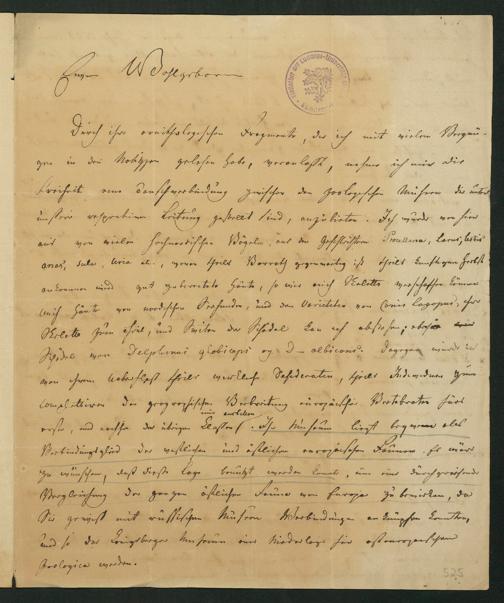 Euer Wohlgeboren
Durch ihre ornithologischen Fragmente, die ich mit vielem Vergnü-
gen in den gelesen habe, veranlaßt, nehme ich mir die
Freiheit eine Tauschverbindung zwischen den zoologischen Museen die unter
unserer respectiven Leitung gestellt sind, anzubieten. Ich würde von hier
aus von vielen hochnordischen Vögeln, aus den Geschlechtern Larus, Lestris
anas, Uria etc., wovon theils Vorrath gegenwärtig ist theils künftigen Herbst
ankommen wird gut Häute, so wie auch Skelette verschaffen können
auch Häute von nordischen Seehunden, und den Varietäten von Canis lagopus, ihre
Skelette zum theil, und Suiten der Schädel kan ich abstehen; ebenso
Schädel von Delphinus globiceps og D. albicans. Dagegen würde ich
von ihrem Ueberfluß theils werthvolle theils Individuen zum
completiren der geographischen Verbreitung europäischer Vertebraten fürs
erste, und nachher der übrigen Classen mir erbitten. Ihr Museum liegt bequem als
Verbindungsglied der westlichen und östlichen europäischen Faunen. Es wäre
zu wünschen, daß diese Lage benützt werden konnte, um eine durchgreifende
Vergleichung der ganzen östlichen Fauna von Europa zu bewirken, da
Sie gewiß mit russischen Museen Verbindungen anknüpfen konnten,
und so das Königsberger Museum eine Niederlage für osteuropäischen
Zoologica werden.
525